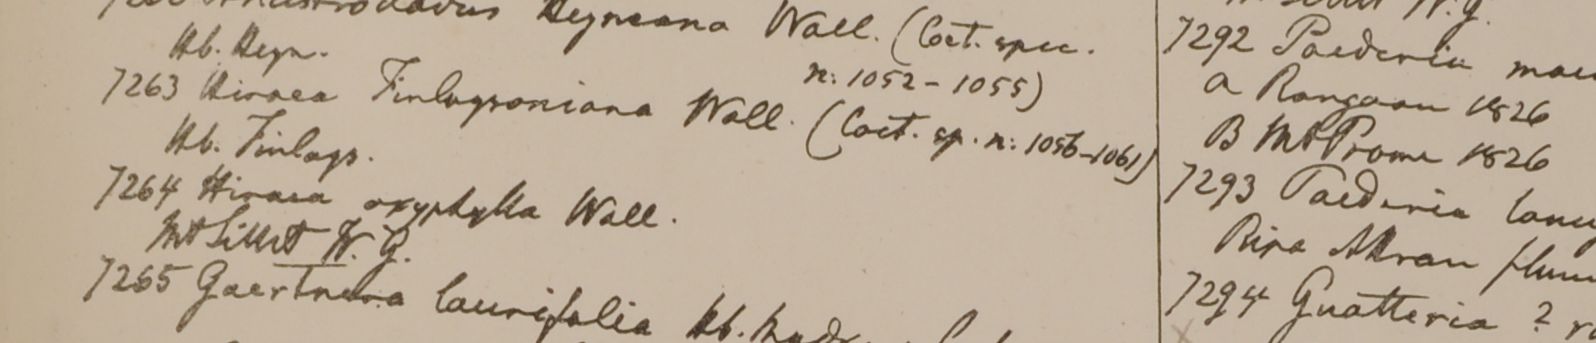 Heyneana Wall. (Coct. spec.
Hb. Heyn. n: 1052-1055)
7263 Hiraea Finlaysoniana Wall. (Coct. sp. n: 1056-1061)
Hb. Finlays.
7264 Hiraea oxyphylla Wall.
Mt Sillet W. G.
7265 Gaertnera laurifolia Hb. Madr.
W. G.
7292 Paederia
a Rangoon 1826
B Mt Prome 1826
7293 Paederia
Ripa Attran
7294 Guatteria ?